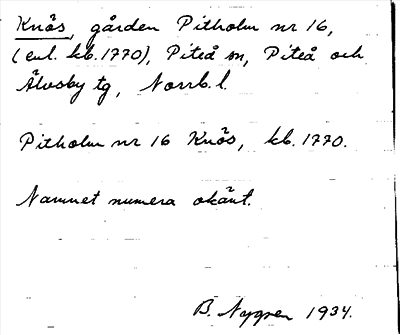 Knös, gården Pitholm nr 16,
(enl. kb. 1770), Piteå sn, Piteå och
Älvsby tg, Norrb. l.
Pitholm nr 16 Knös, kb. 1770.
Namnet numera okänt.
B. Nygren 1934.